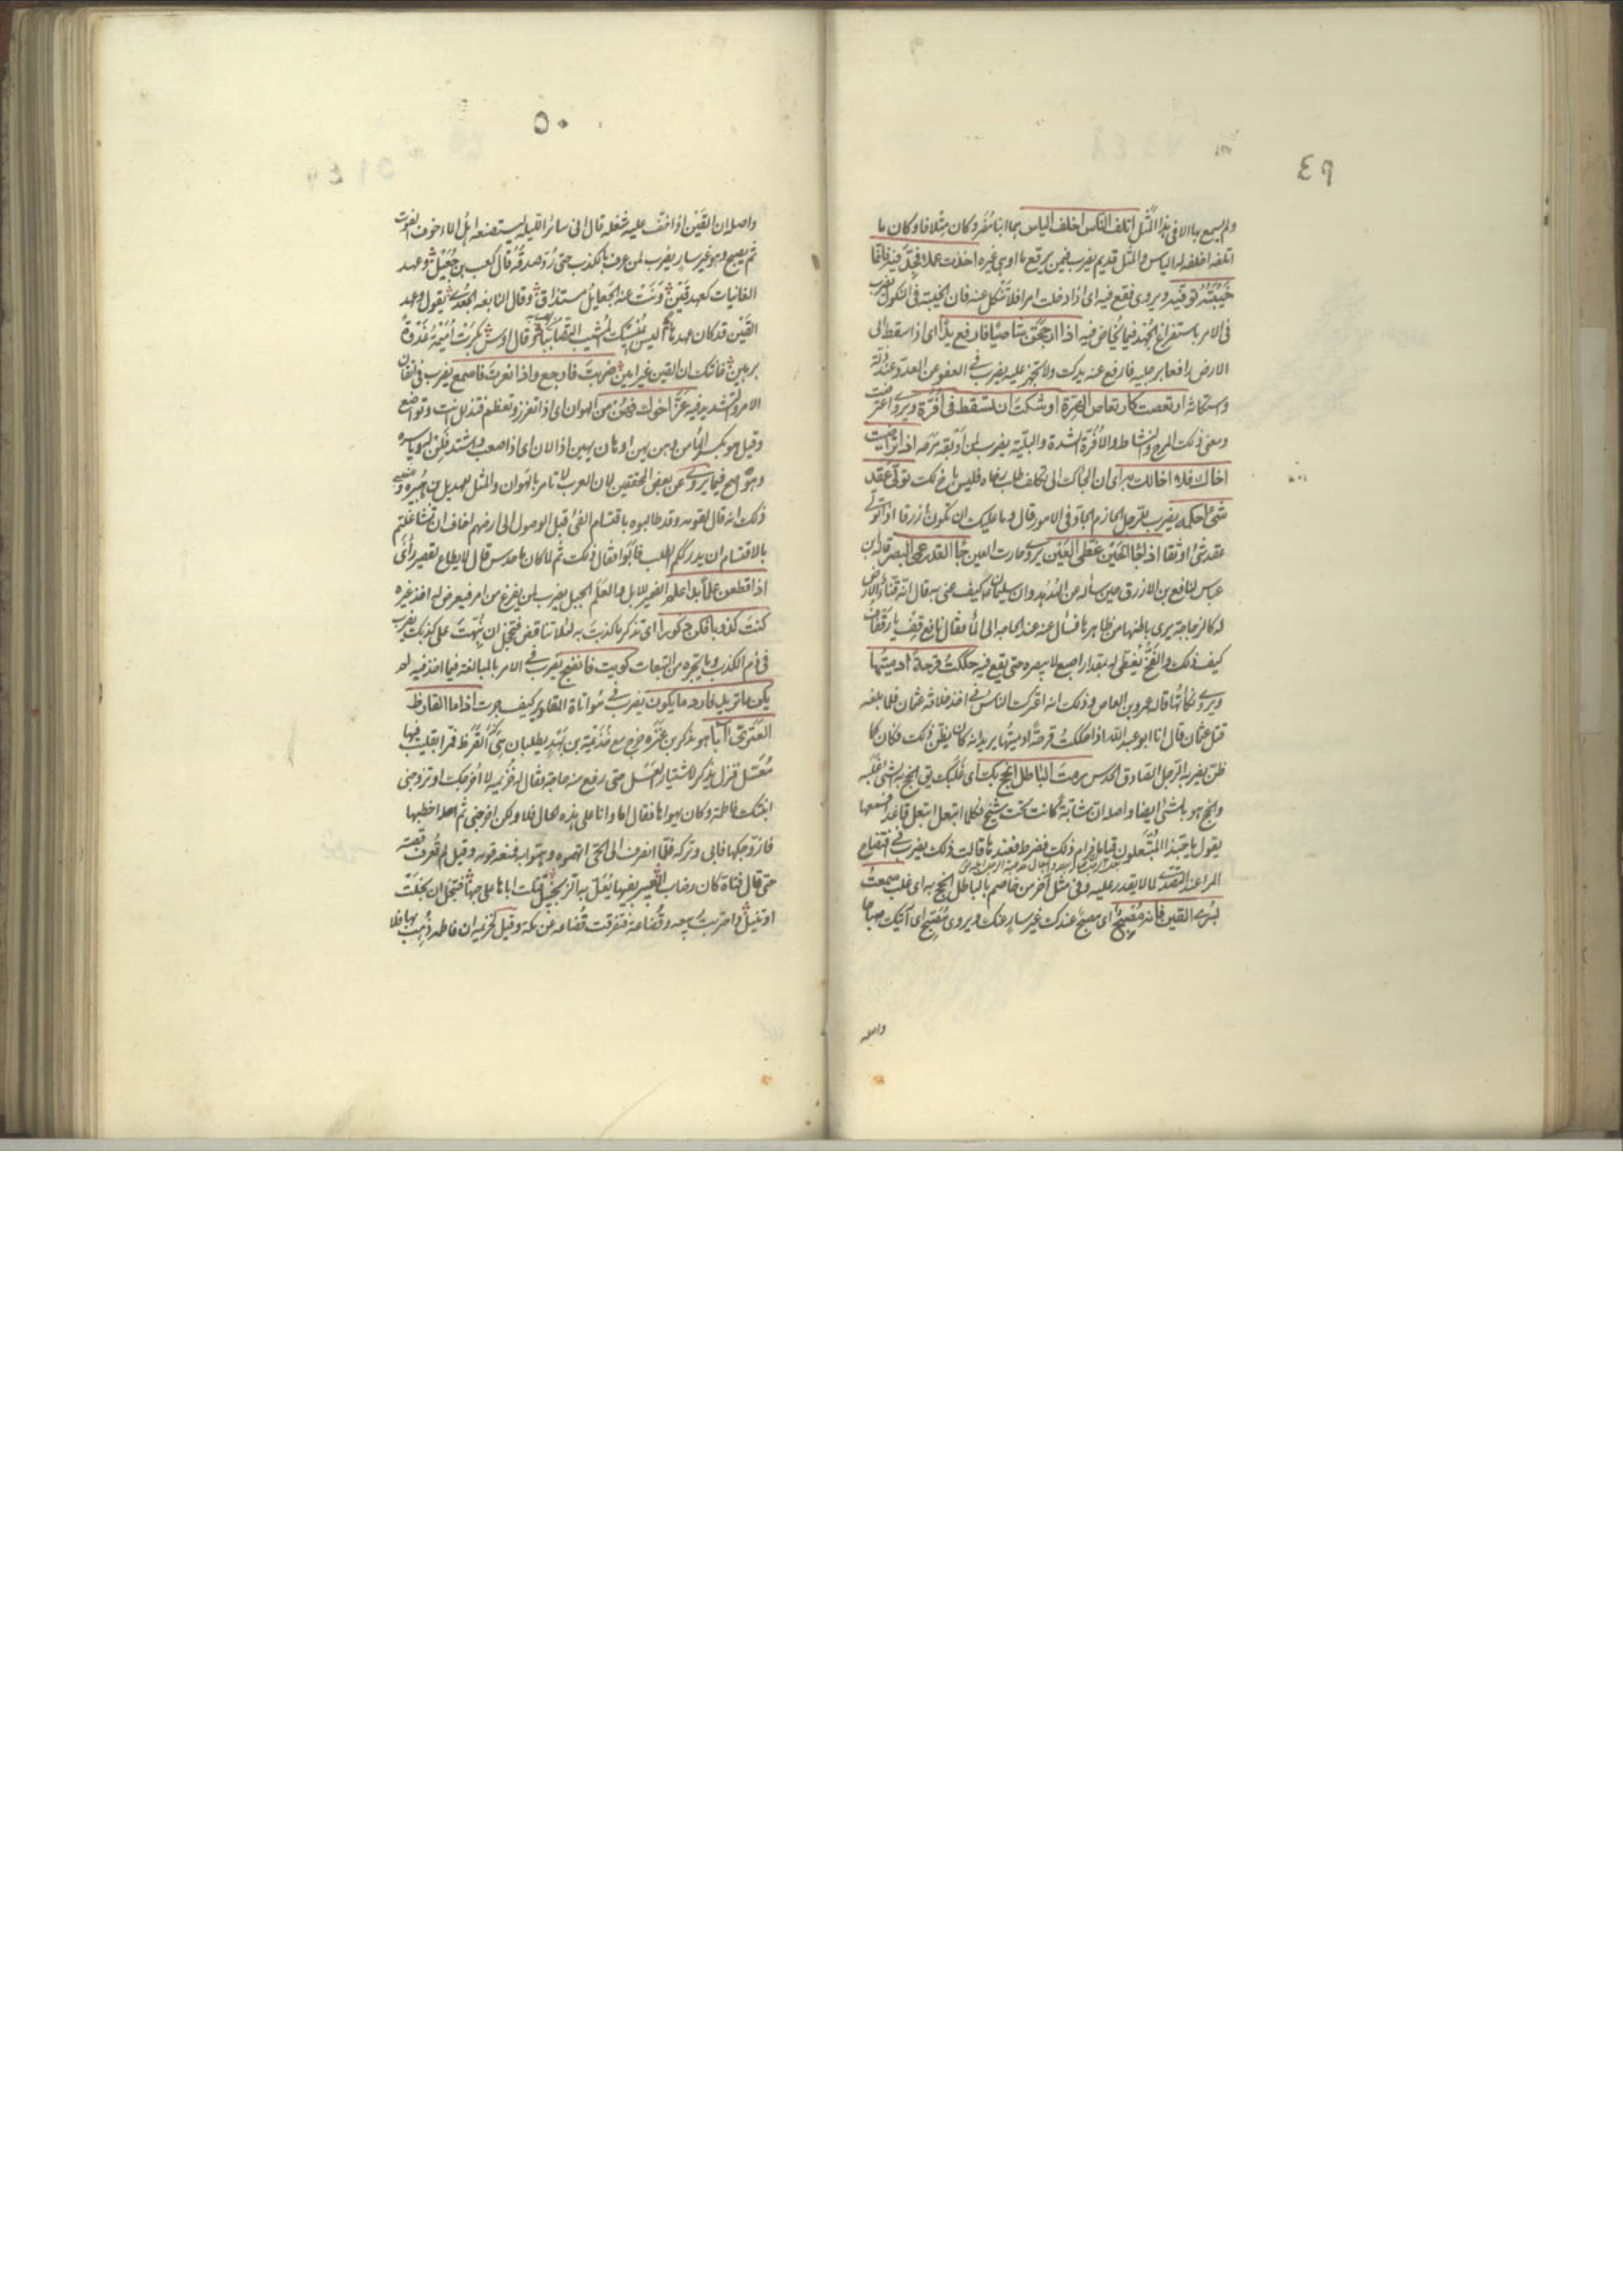 ٤٩
ولم يسمع بها الا فى هذا المثل اتلف الناس اخلف الياس هما ابنا مضر وكان متلافا وكان ما
اتلفه اخلفه له الياس والمثل قديم يضرب فيمن يرقع ما اوهى غيره اخذت عملا فقع فيه فانما
خيبته توقيه ويروى فقع فيه اى اذا دخلت امرا فلا تنكل عنه فان الخيبة فى النكول يضرب
فى الامر باستفراغ الجهد فيما يخاض فيه اذا ارجحن شاصيا فارفع يدا اى اذا سقط الى
الارض رافعا برجليه فارفع عنه يدك ولا تجهز عليه يضرب فى العفو عن العدو عند ذلته
واستكانته ارتعصت اوشكت ان تسقط فى افرة ويروى اعترضت
ومعنى ذلك المرح والنشاط والافرة الشدة والبلية يضرب لمن اوبقه مرحه اذا تراضيت
اخاك فلا اخا لك اى ان الجاك الى تكلف طلب رضاه فليس باخ لك توقى عقد
شئ احكمه يضرب للرجل الحازم الجاد فى الامور قال وما عليك ان تكون ازرقا اذا تولى
عقد شئ اوثقا اذا جا الحين غطى العين يروى حارت العين جا القدر عمى البصر قاله ابن
عباس لنافع بن الازرق حين ساله عن الهدهد وان سليمان كيف عنى به قال انه قناء والارض
له كالزجاجة يرى باطنها من ظاهرها فسأل عنه عند الحاجة الى الماء فقال نافع قف يا وقاف
كيف ذلك والفخ يغطى له بمقدار اصبع لا يبصره حتى يقع فيه حككت قرحة ادميتها
ويروى نكأتها قاله عمرو بن العاص وذلك انه اعتزل الناس فى اخر خلافة عثمان فلما بلغه
قتل عثمان قال انا ابو عبد الله اذا حككت قرحة ادميتها يريد انه كان يظن ذلك فكان كما
ظن يضربه الرجل الصادق الحدس رمت الباطل انجح بك اى غلبك يق انجح به الشئ اغلبه
وانجح هو بالشئ ايضا واصله ان شابة كانت تحت شيخ فكلما انتعل انتعل قاعدا فسمعها
يقول يا حبذا المنتعلون قياما فرام ذلك فضرط فعندها قالت ذلك يضرب فى افتضاح
المراء عند التصدى لما لا يقدر عليه وفى مثل اخر من خاصم بالباطل انجح به اى غلب سمعت
بسرى القين فانه مصبح اى مصبح عندك غير سار عنك ويروى مصبح اى آتيك صباحا
واصله
٥٠
واصله ان القين اذا خف عليه شغله قال انى سائر الليلة ليستصنعه اهل الماء خوف الفوت
ثم يصبح وهو غير سار يضرب لمن عرف بالكذب حتى رد صدقه قال كعب بن جعيل وعهد
الغانيات كعهد قين ونت عنه الجعايل مستذاق وقال النابغه الجعدى يقول وعهد
القين قد كان عهدها ليس ينسيك المشيب التصابيا وقال اوس بكرت امية غدوة
برهين خانتك ان القين غير امين ضربت فاوجع واذا زجرت فاسمع يضرب فى اتقان
الامر والتشديد فيه عز اخوك فهن من الهوان اى اذا تعزز وتعظم فتذلل انت وتواضع
وقيل هو بكسر الهاء من وهن يهن او هان يهين اذا لان اى اذا صعب واشتد فلن له وياسره
وهو اصح فيما يروى عن بعض المحققين لان العرب لا تامر بالهوان والمثل لهذيل بن هبيره
ذلك انه قال لقومه وقد طالبوه باقتسام الفئ قبل الوصول الى ارضهم اخاف ان تشاغلتم
بالاقتسام ان يدرككم الطلب فابوا فقال ذلك ثم لما كان ما حدس قال لا يطاع لقصير رأى
اذا قطعن علما بدا علم الضمير للابل والعلم الجبل يضرب لمن يفرغ من امر فيعرض له اخر غيره
كنت كذوبا فكن ذكورا اى تذكر ما كذبت به لئلا تناقض فتخجل ان بهت على كذبك يضرب
فى ذم الكذب وما يجره من التبعات كويت فانضج يضرب فى الامر بالمبالغة فيما اخذ فيه لم
يكن ما تريد فارد ما يكون يضرب فى مواتاة المقادير كيف جرت اذا ما القارظ
العنزى آبا هو يذكر بن عنزه خرج مع خزيمة بن نهد يطلبان القرظ فمرا بقليب فيها
معسل فنزل يذكر لاشتيار العسل حتى رفع منه حاجته فقال له خزيمه لا اخرجك او تزوجنى
ابنتك فاطمة وكان يهواها فقال اما وانا على هذه الحال فلا ولكن اخرجنى ثم اخطبها
فازوجكها فابى وتركه فلما انصرف الى الحى اتهموه به فمنعه قومه وقيل لم تعرف قصته
حتى قال فتاة كان رضاب العبير بفيها يعل به الزنجبيل قتلت اباها على حبها فتبخل ان بخلت
او تنيل واحتربت ربيعه وقضاعه فتفرقت قضاعه عن مكه وقيل لخزيمه ان فاطمه ذهب بها فلا